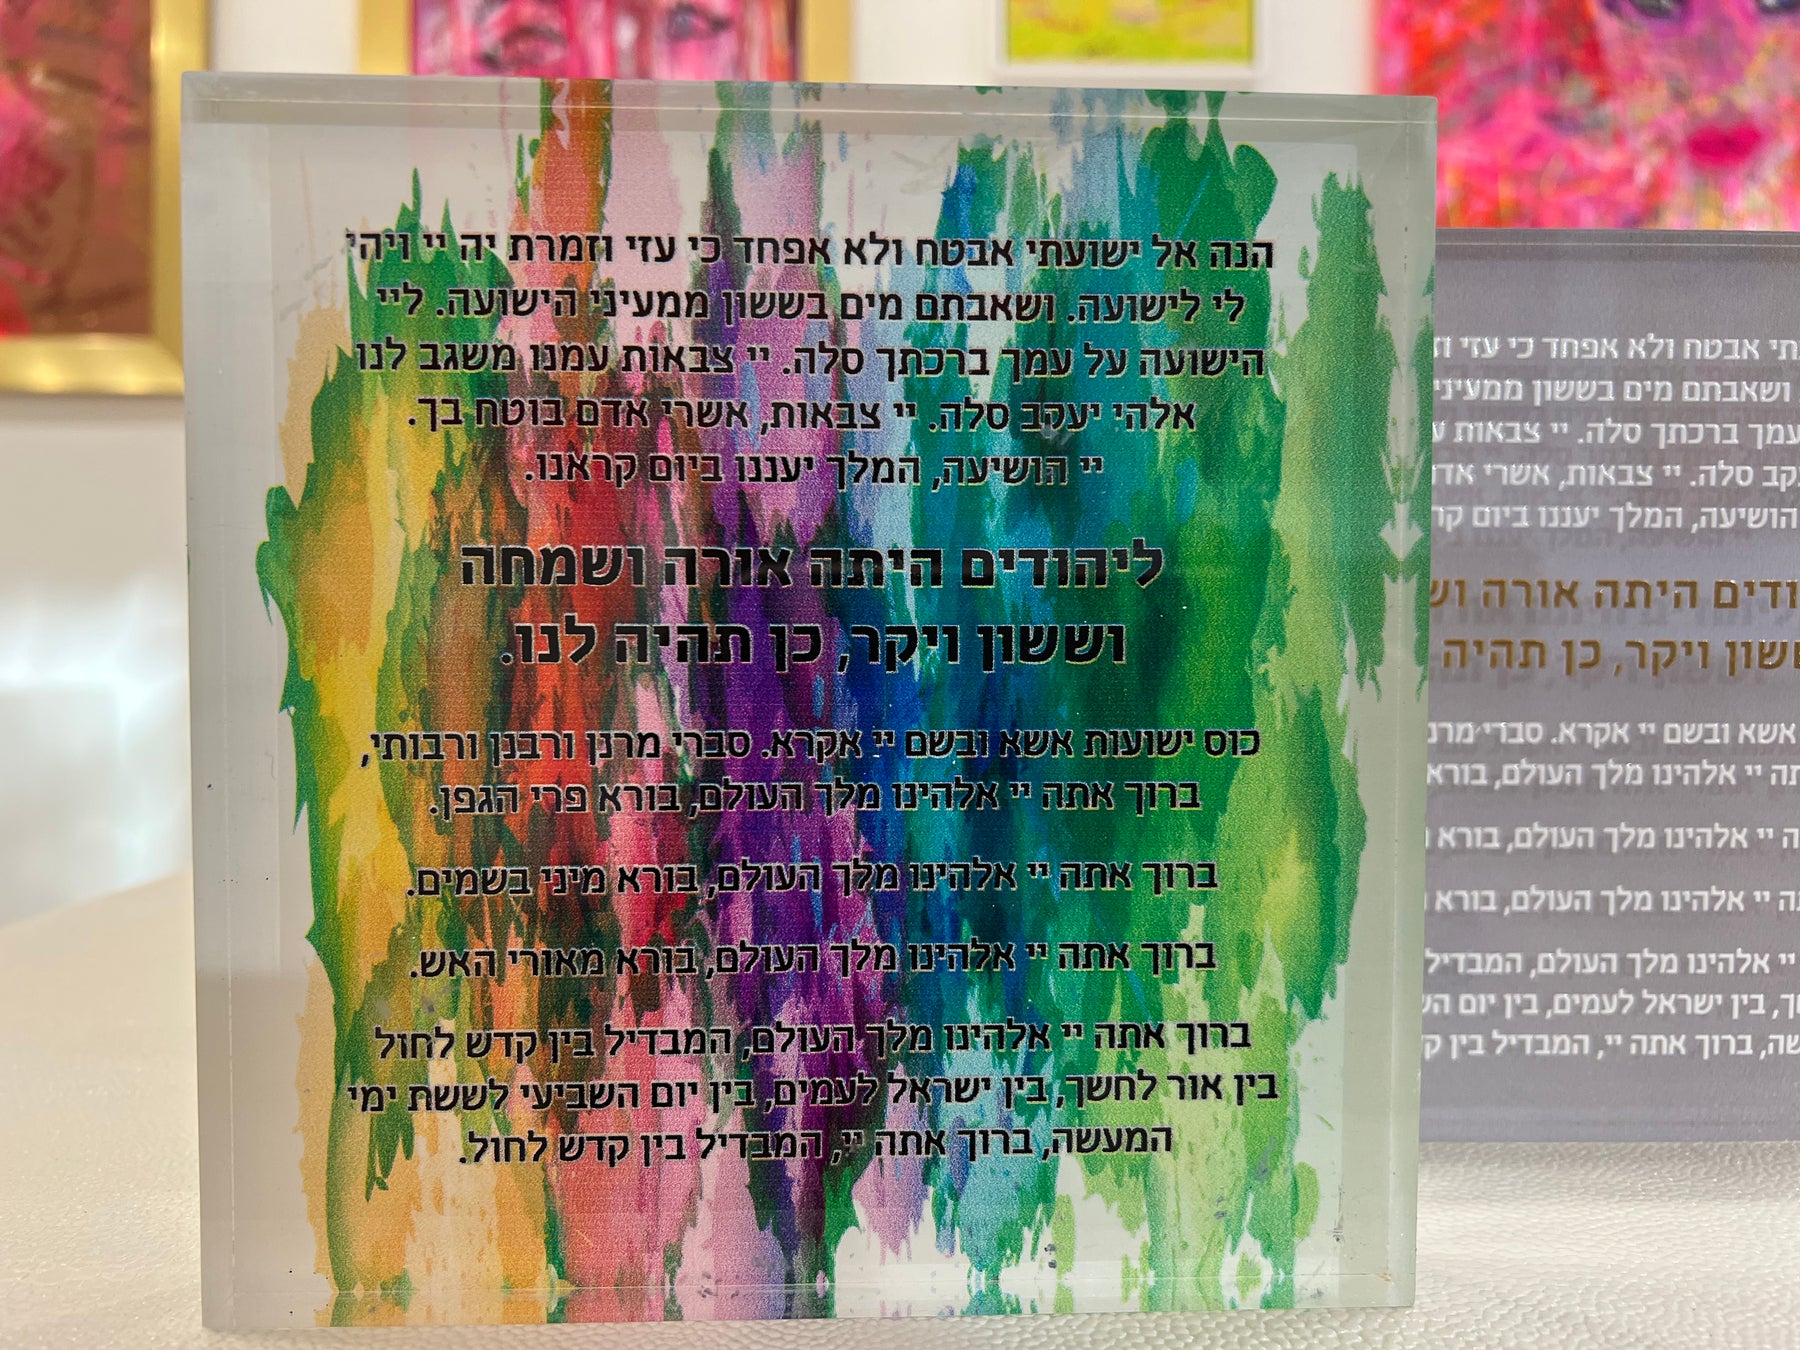 הנה אל ישועתי אבטח ולא אפחד כי עזי וזמרת יה יי ויהי
לי לישועה. ושאבתם מים בששון ממעיני הישועה. ליי
הישועה על עמך ברכתך סלה. יי צבאות עמנו משגב לנו
אלהי יעקב סלה. יי צבאות, אשרי אדם בוטח בך.
יי הושיעה, המלך יעננו ביום קראנו.
ליהודים היתה אורה ושמחה
וששון ויקר, כן תהיה לנו.
כוס ישועות אשא ובשם יי אקרא. סברי מרנן ורבנן ורבותי,
ברוך אתה יי אלהינו מלך העולם, בורא פרי הגפן.
ברוך אתה יי אלהינו מלך העולם, בורא מיני בשמים.
ברוך אתה יי אלהינו מלך העולם, בורא מאורי האש.
ברוך אתה יי אלהינו מלך העולם, המבדיל בין קדש לחול
בין אור לחשך, בין ישראל לעמים, בין יום השביעי לששת ימי
המעשה, ברוך אתה יי, המבדיל בין קדש לחול.
אבטח ולא אפחד כי עזי
ושאבתם מים בששון ממעיני
עמך ברכתך סלה. יי צבאות
סלה. יי צבאות, אשרי
הושיעה, המלך יעננו ביום
היתה אורה
ויקר, כן תהיה
אשא ובשם יי אקרא. סברי מרנן
יי אלהינו מלך העולם, בורא
יי אלהינו מלך העולם, בורא
יי אלהינו מלך העולם, בורא
יי אלהינו מלך העולם, המבדיל
בין ישראל לעמים, בין יום
ברוך אתה יי, המבדיל בין